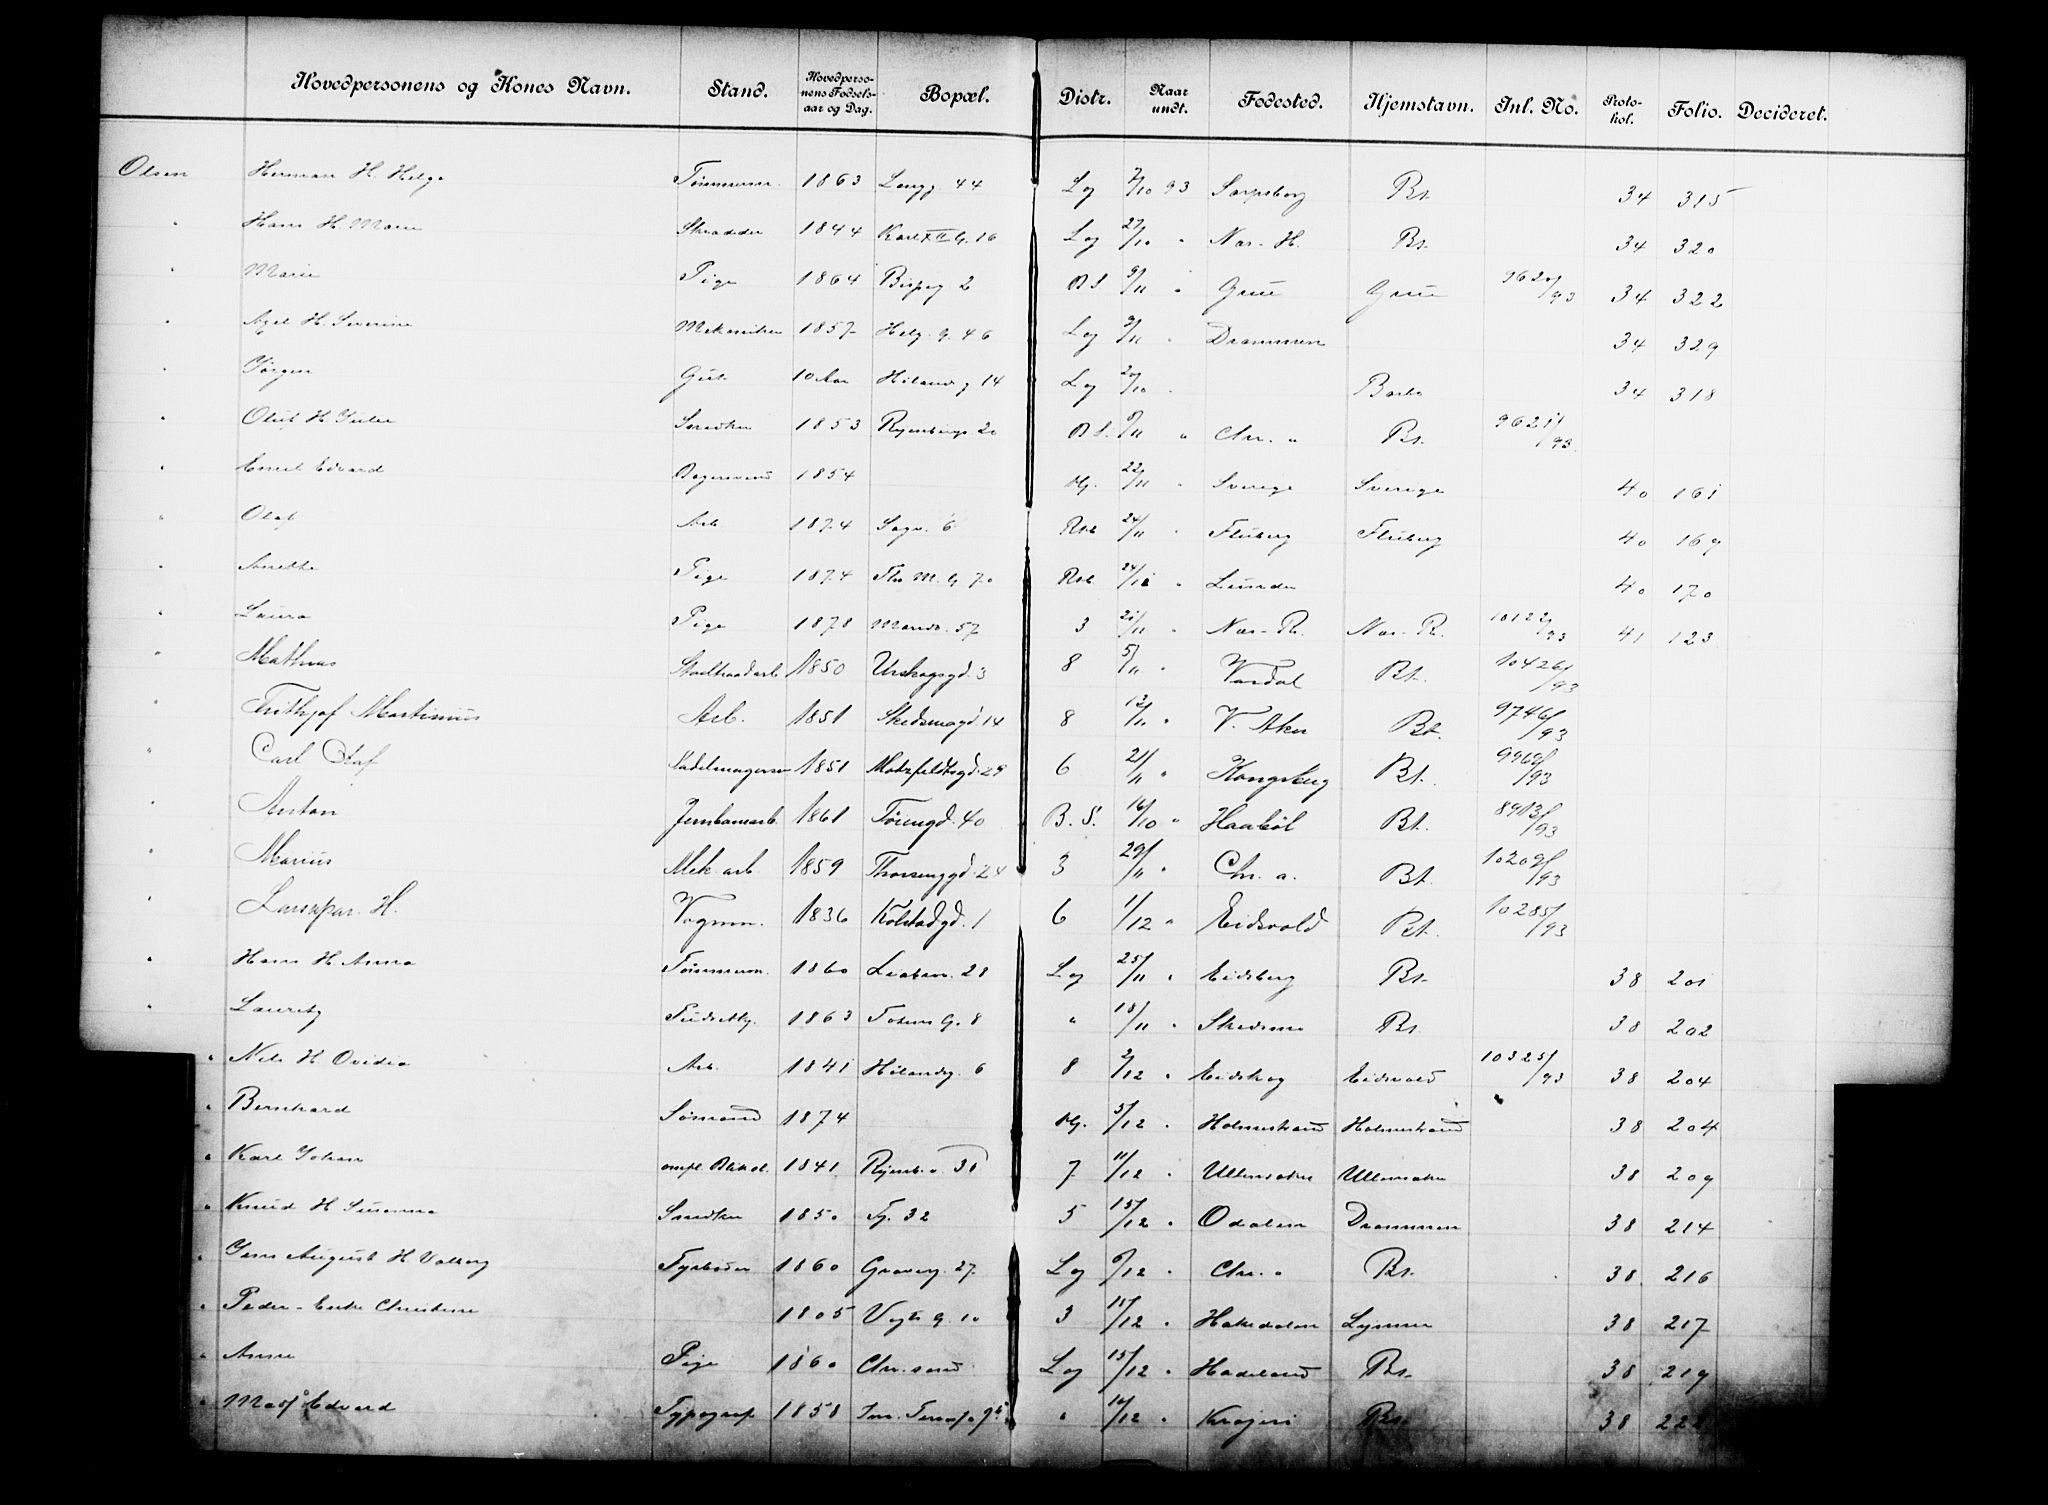 Hovedpersonens og Kones Navn. Stand. Hovedperso- nens Fødsels- aar og Dag. Bopæl. Distr. Naar undt. Fødested. Hjemstavn. Inl. No. Proto- kol. Folio. Decideret.
Olsen Herman H. Helga Tømmerm. 1863 Langg. 44 Log 2/10 93 Sarpsborg Bt. 34 315
" Hans H. Marie Skrædder 1844 Karl XII G. 16 Log 27/10 " Næs - H. Bt. 34 320
" Marie Pige 1864 Bispeg 2 B S 9/11 " Grue Grue 9620/93 34 322
" Axel H. Severine Mekaniker 1857 Helg. G. 46 Log 3/11 " Drammen 34 329
" Jørgen Gut 10 Aar Hølandsg 14 Log 20/10 " 34 318
" Oluf H. Snedker 1853 Ryenbergs 20 B S. /11 " Chr. a Bt. 9621/93
" Emil Edvard Bagersvend 1854 22/11 " Sverige Sverige 40 161
" Olaf Arb 1874 Sagv. 6 24/11 " Fluberg Fluberg 40 169
" Anette Pige 1874 Thv. M. G 70 24/11 " Lunder 40 170
" Laura Pige 1878 Mandr. 57 3 21/11 " Næs - R. Næs - R. 10122/93 41 123
" Mathias 1850 Urskogsgd. 3 8 5/11 " Vardal Bt. 10426/93
" Frithjof Martinius Arb. 1851 Skedsmogd. 14 8 12/11 " V. Aker Bt. 9746/93
" Carl Olaf Sadelmagersv 1851 Motzfeldtsgd. 29 6 21/11 " Kongsberg Bt. 9962/93
" Anton Jernbanearb. 1861 Tøiengd. 40 B. S. 16/10 " Haabøl Bt. 8913/93
" Marius Mek. arb. 1859 24 3 29/11 " Chr. a. Bt. 10209/93
" H. Vognm. 1836 Kolstadgd. 1 6 1/12 " Eidsvold Bt. 10285/93
" Hans H Anna Tømmerm. 1860 28 Log 25/11 " Eidsberg Bt. 38 201
" Lauritz 1863 Totens G. 8 " 18/11 " Skedsmo Bt. 38 202
" Nils H Ovidia Arb. 1841 Hølandsg. 6 8 2/12 " Eidskog Eidsvold 10325/93 38 204
" Bernhard Sømand 1874 5/12 " Holmestrand Holmestrand 38 204
" Karl Johan 1841 7 11/12 " Ullensaker Ullensaker 38 209
" Knud H Susanna Snedker 1850 32 5 15/12 " Odalen Drammen 38 214
" Jens August H Valborg Fyrbøder 1860 Græverg. 27 Log /12 " Chr. a Bt. 38 216
" Peder - Enke Christine 1805 Vogts G. 10 3 11/12 " Hakedalen 38 217
" Anne Pige 1860 Log 15/12 " Hadeland Bt. 38 219
" Edvard Typograf 1858 " 16/12 " Bt. 38 222